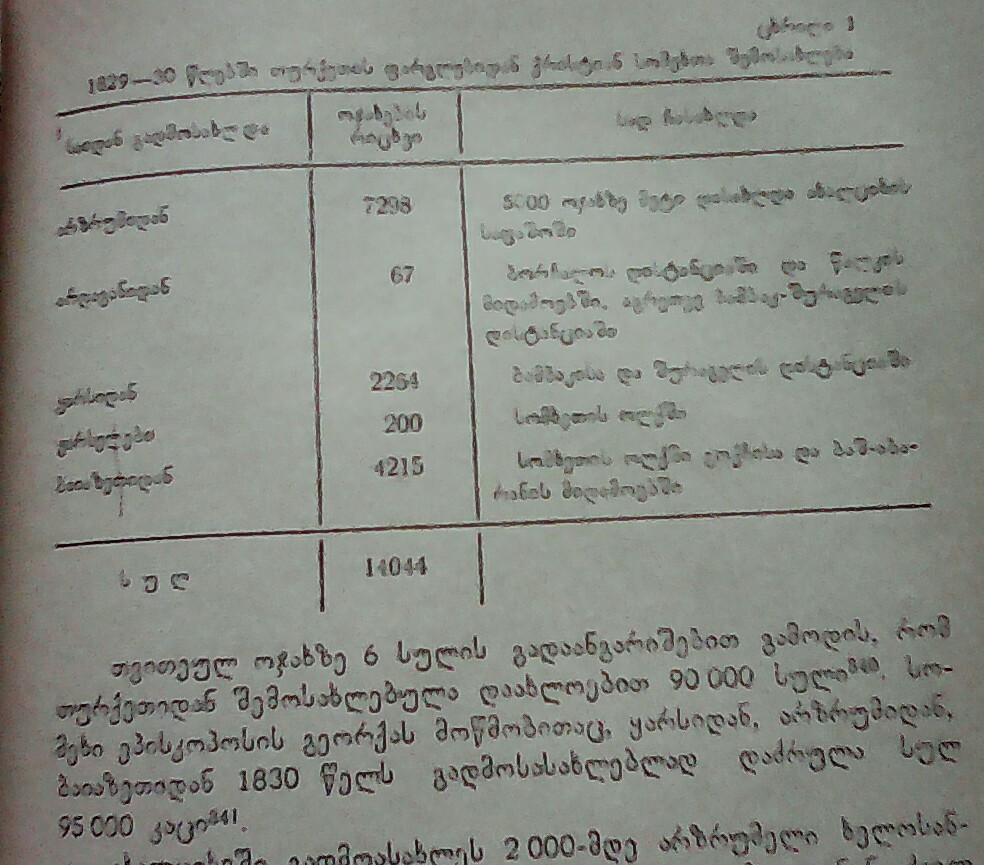 ცხრილი 1
1829—30 წლებში თურქეთის ფარგლებიდან ქრისტიან სომეხთა შემოსახლება
საიდან გადმოსახლდა
ოჯახების რიცხვი
სად ჩასახლდა
არზრუმიდან 7298 5000 ოჯახზე მეტი დასახლდა ახალციხის
საფაშოში
არდაგანიდან 67 ბორჩალოს დისტანციაში და წალკის
მიდამოებში, აგრეთვე ბამბაკ-შურაგელის
დისტანციაში
ყარსიდან 2264 ბამბაკისა და შურაგელის დისტანციაში
200 სომხეთის ოლქში
ბაიაზეთიდან 4215 სომხეთის ოლქში გოქჩისა და ბაშ-აბა-
რანის მიდამოებში
ს უ ლ 14044
თვითეულ ოჯახზე 6 სულის გადაანგარიშებით გამოდის, რომ
თურქეთიდან შემოსახლებულა დაახლოებით 90 000 სული⁸⁴⁰. სო-
მეხი ეპისკოპოსის გეორქას მოწმობითაც, ყარსიდან, არზრუმიდან,
ბაიაზეთიდან 1830 წელს გადმოსასახლებლად დაძრულა სულ
95 000 კაცი⁸⁴¹.
გადმოსახლეს 2 000-მდე არზრუმელი ხელოსან-